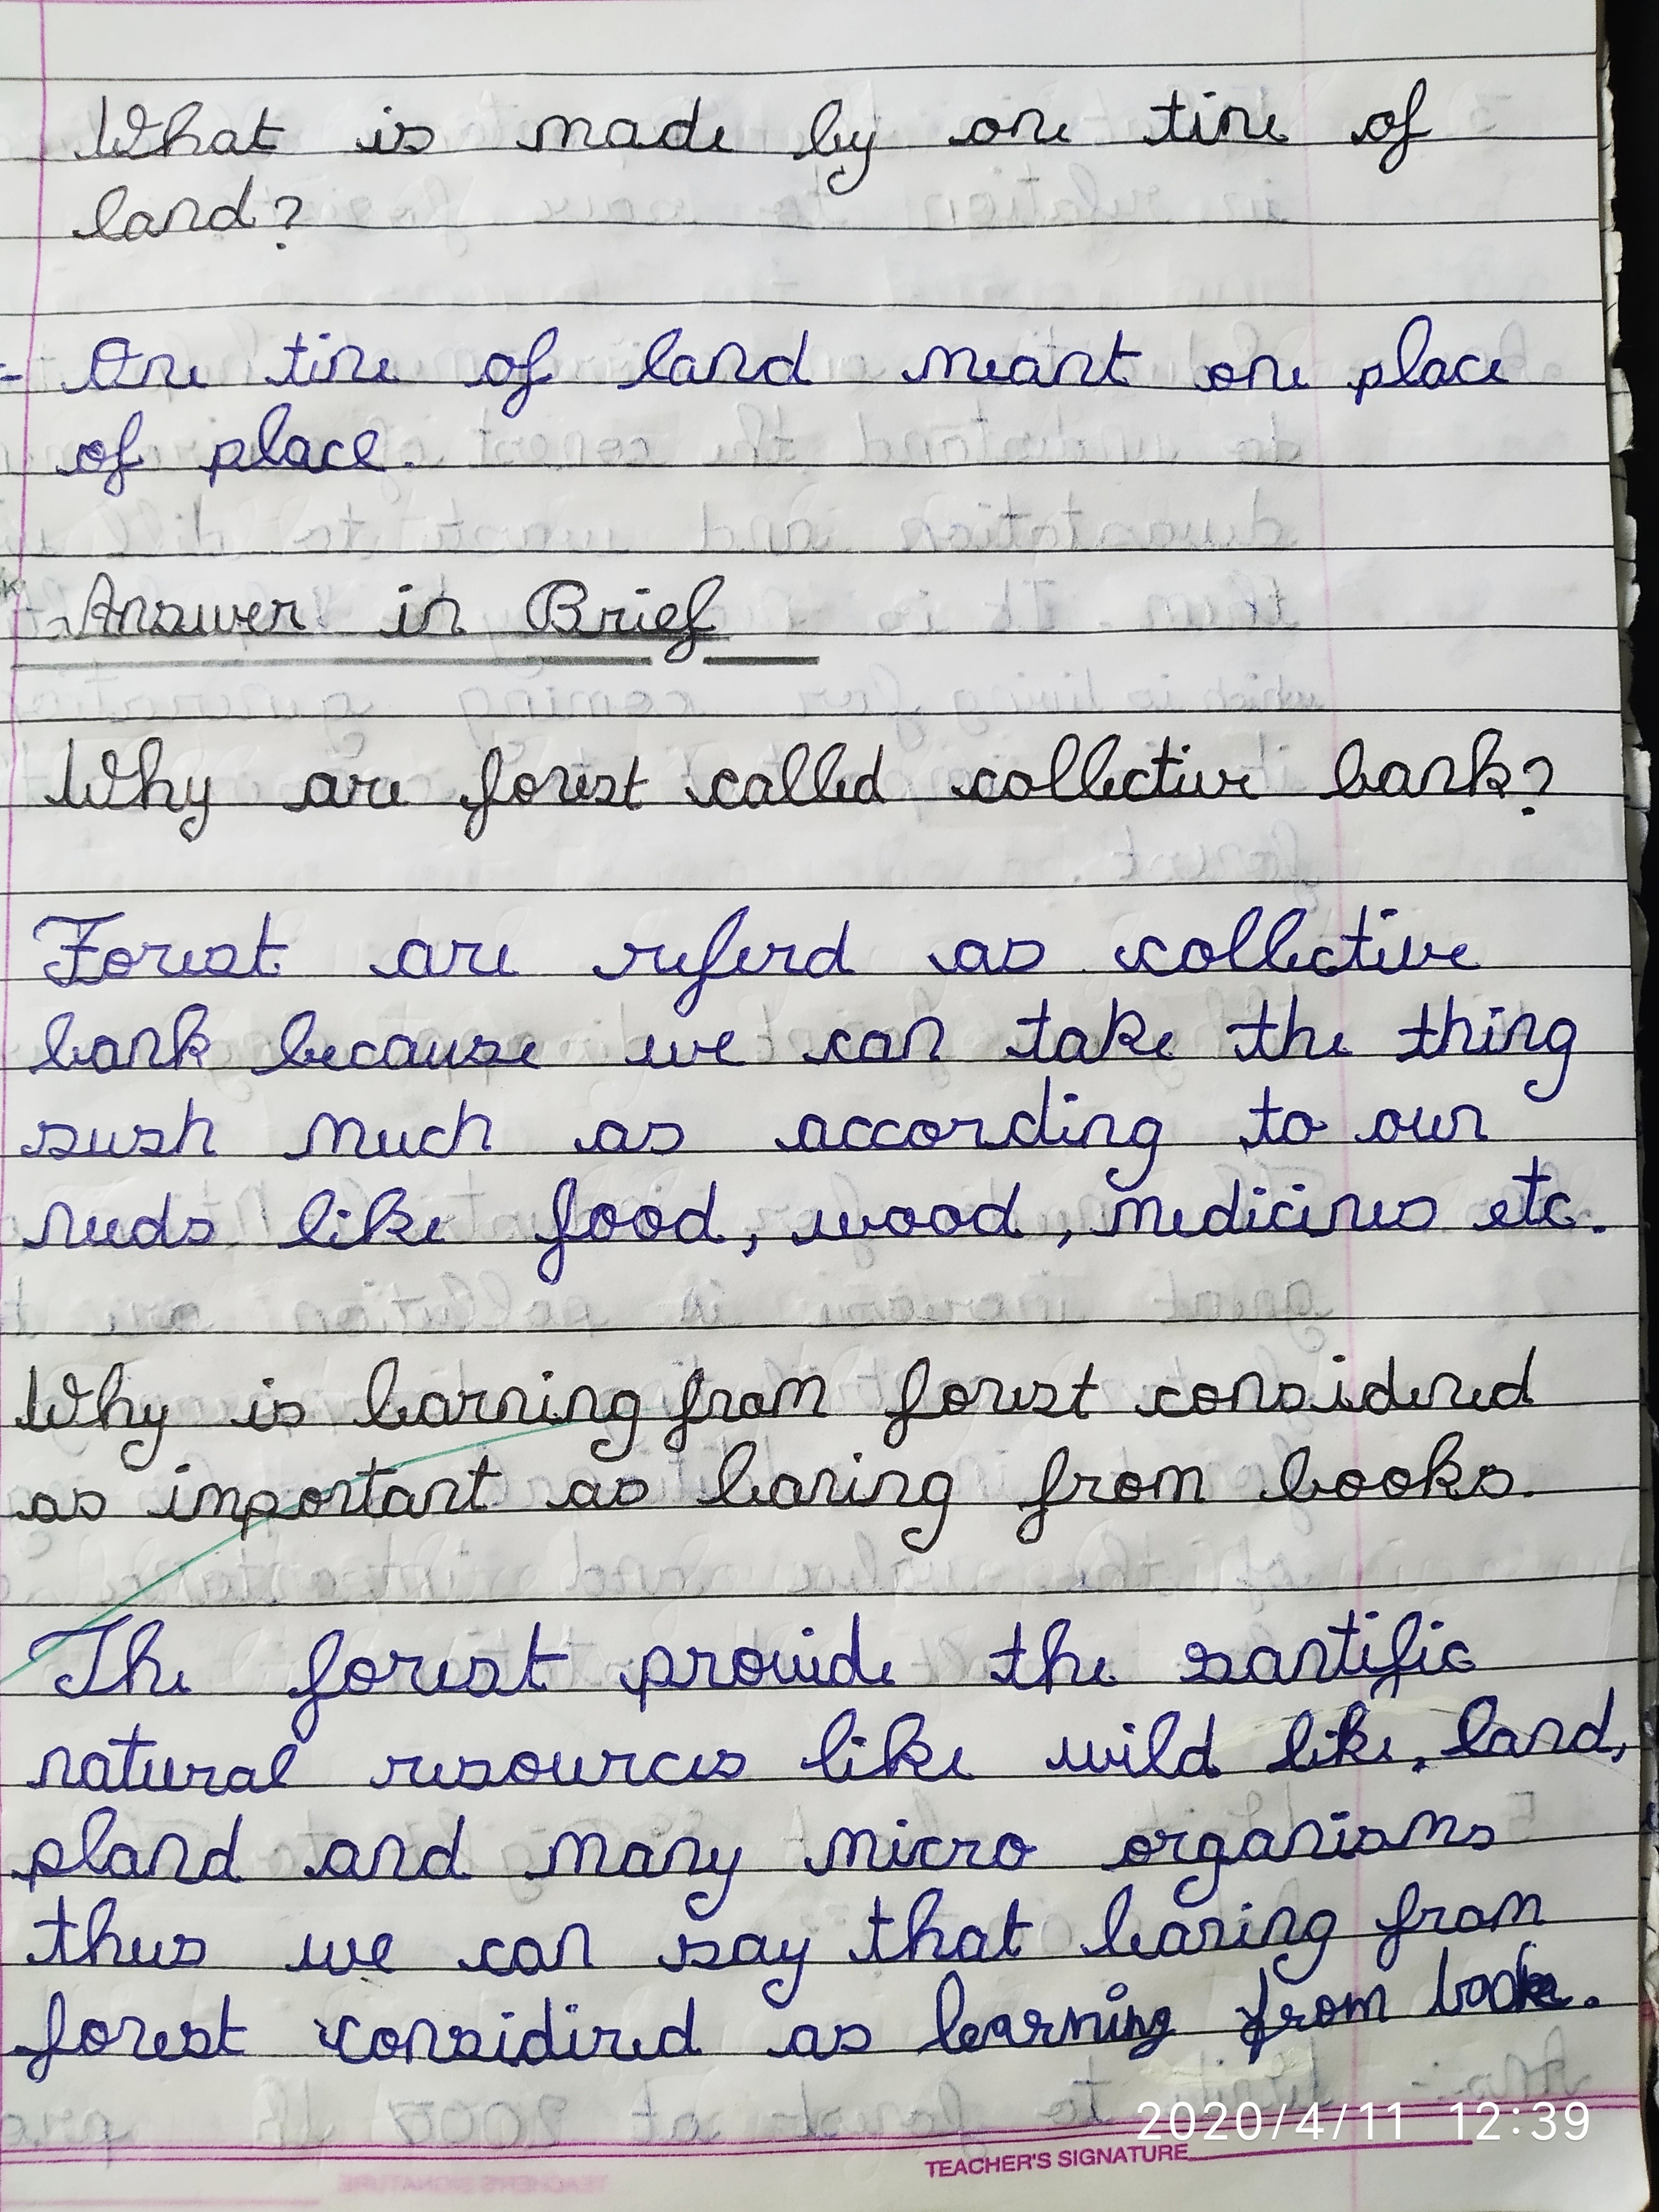 What is made by one tine of
land?
- One tine of land meant one place
of place.
Answer in Brief
Why are forest called collective bank?
Forest are referd as collective
bank because we can take the thing
sush much as according to our
needs like food, wood, medicines etc.
Why is learning from forest considered
as important as learing from books.
The forest provide the santific
natural resources like wild like, land,
pland and many micro organisms
thus we can say that learing from
forest considired as learning from book.
2020/4/11 12:39
TEACHER'S SIGNATURE